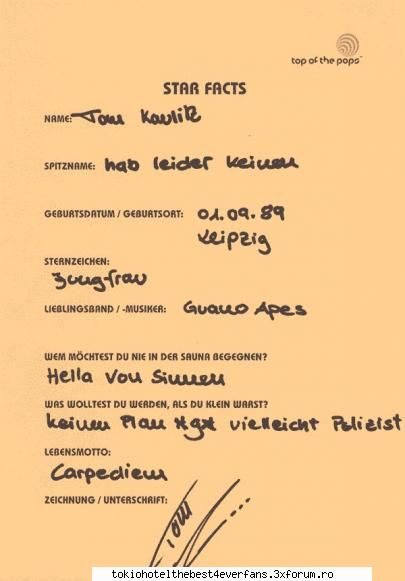 top of the pops™
STAR FACTS
NAME: Tom Kaulitz
SPITZNAME: hab leider keinen
GEBURTSDATUM / GEBURTSORT: 01.09.89
Leipzig
STERNZEICHEN:
Jungfrau
LIEBLINGSBAND / -MUSIKER: Guano Apes
WEM MÖCHTEST DU NIE IN DER SAUNA BEGEGNEN?
Hella Von Sinnen
WAS WOLLTEST DU WERDEN, ALS DU KLEIN WARST?
keinen Plan vielleicht Polizist
LEBENSMOTTO:
Carpediem
ZEICHNUNG / UNTERSCHRIFT:
Tom
tokiohotelthebest4everfans.3xforum.ro